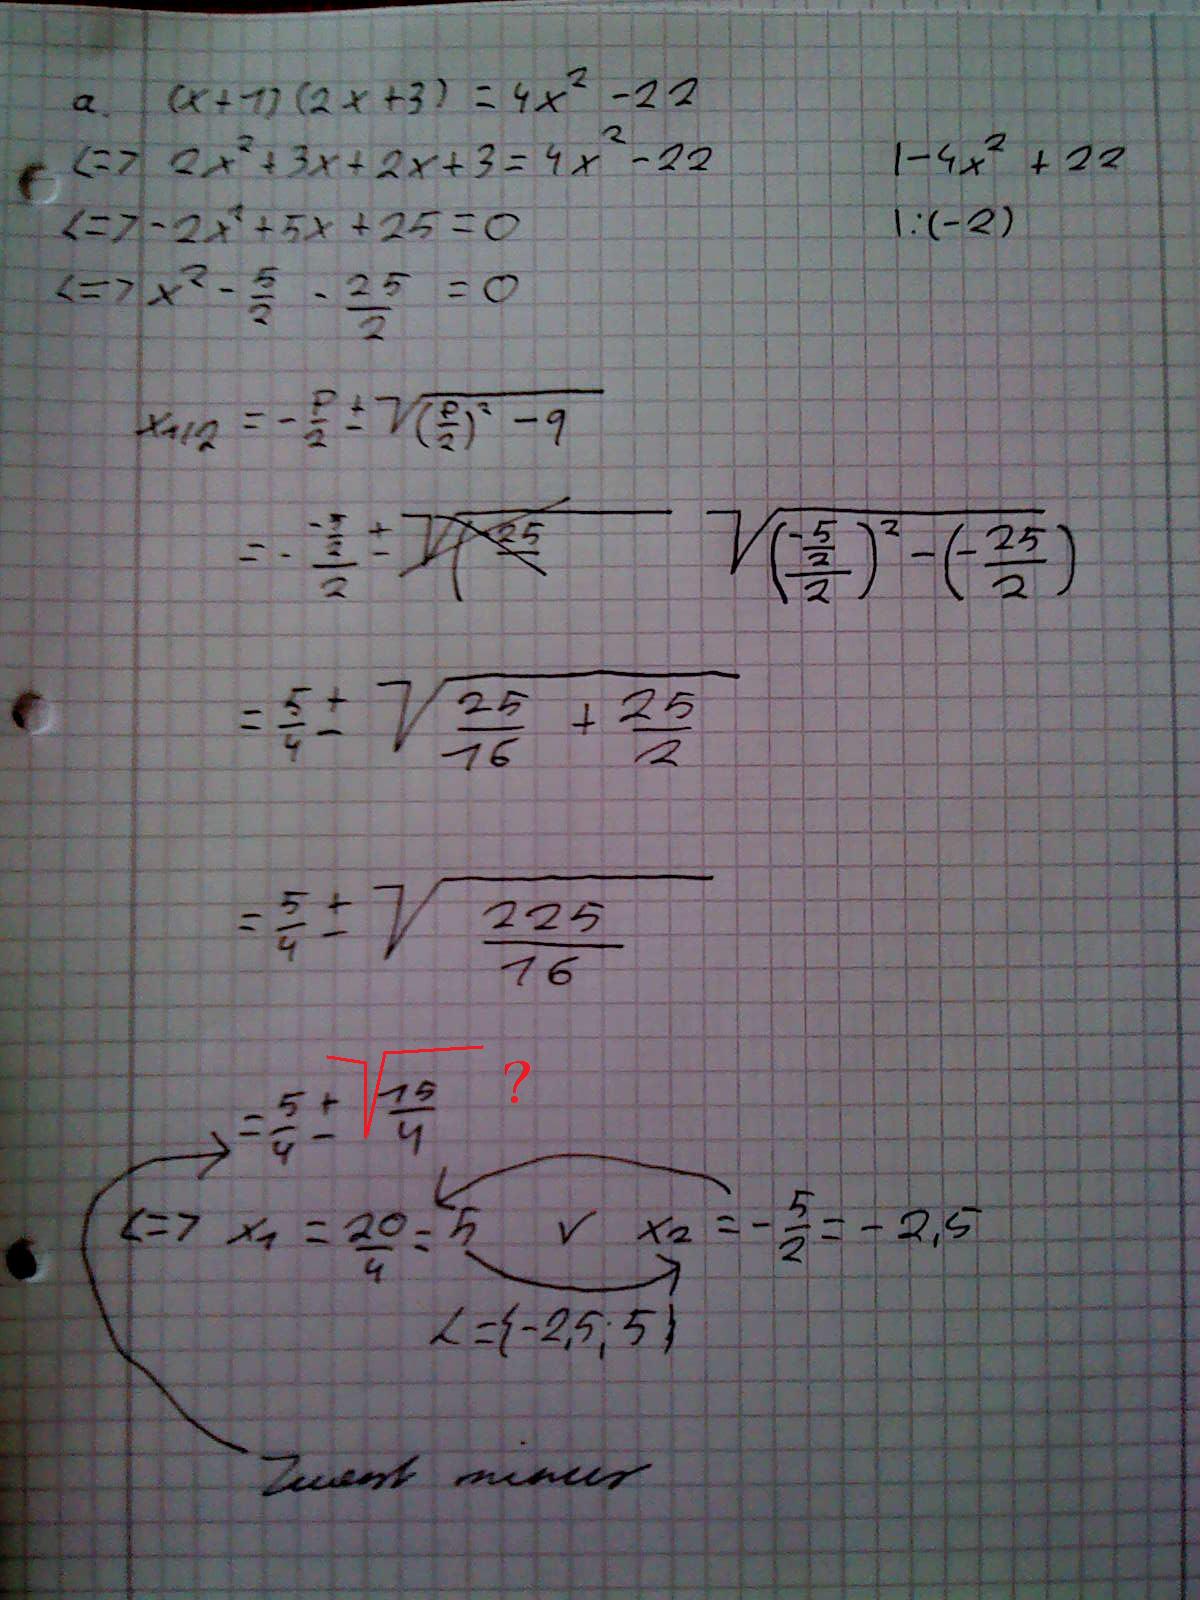 a. (x+1)(2x+3) = 4x² -22
<=> 2x²+3x+2x+3=4x²-22 |-4x² +22
<=> -2x²+5x+25=0 |:(-2)
<=> x² - 5/2 - 25/2 = 0
x₁,₂ = - p/2 ± √((p/2)² - q)
= - (-5/2)/2 ± √( 25 √(((-5/2)/2)² - (-25/2))
= 5/4 ± √(25/16 + 25/2)
= 5/4 ± √(225/16)
= 5/4 ± √15/4 ?
<=> x₁ = 20/4 = 5 v x₂ = -5/2 = -2,5
L={-2,5;5}
Zuerst minus